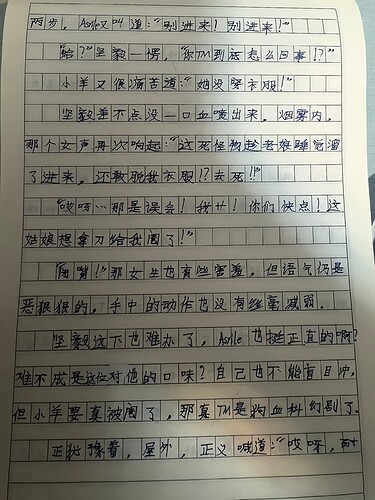 两步，Asile又叫道：“别进来！别进来！”
“哈？”坚毅一愣，“你TM到底怎么回事！？”
小羊又很痛苦道：“她没穿衣服！”
坚毅差不点没一口血喷出来，烟雾内，
那个女声再次响起：“这死怪物趁老娘睡觉溜
了进来，还敢脱我衣服！？去死！！”
“哎呀…那是误会！我艹！你们快点！这
姑娘想拿刀给我阉了！”
“闭嘴！”那女生也有些害羞，但语气仍是
恶狠狠的，手中的动作也没有丝毫减弱。
坚毅这下也难办了，Asile也挺正直的啊？
难不成是这位对他的口味？自己也不能盲目冲，
但小羊要真被阉了，那真TM是狗血科幻剧了。
正犹豫着，屋外，正义喊道：“哎呀，